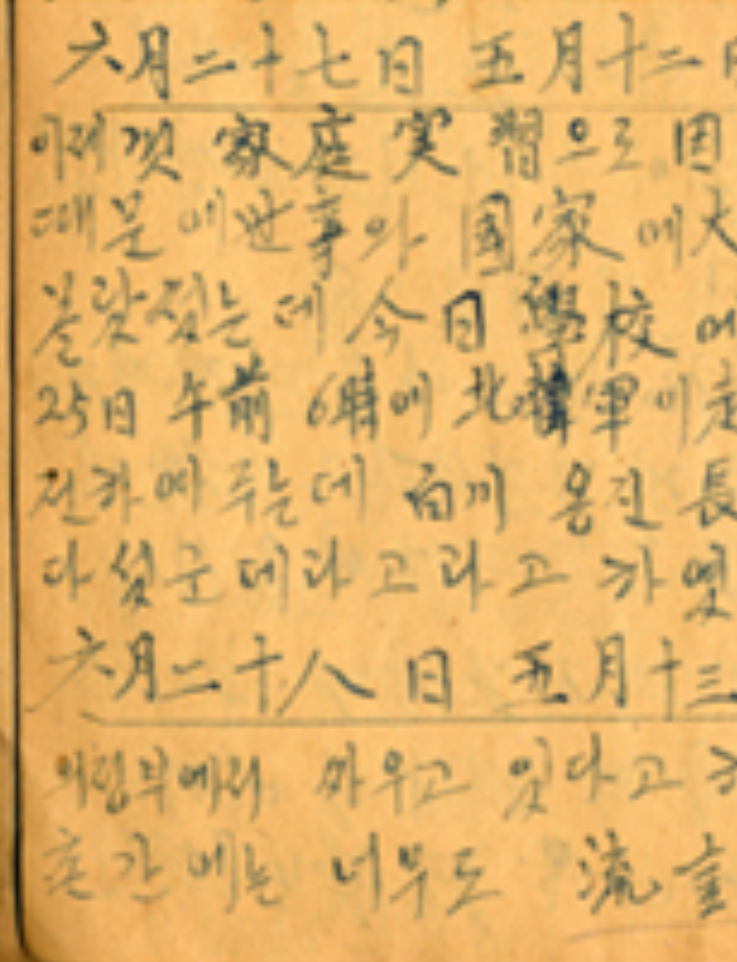 六月二十七日 五月十二日
이레 것 家庭実習으로 因
때문에 世事와 國家에 大
몰랏섰는데 今日 學校에
25日 午前 6時에 北韓軍이
전하여 주는데 白川 옹진 長
다섯군데라고라고 하엿
六月二十八日 五月十三
의정부에서 싸우고 잇다고
촌간에는 너무도 流言